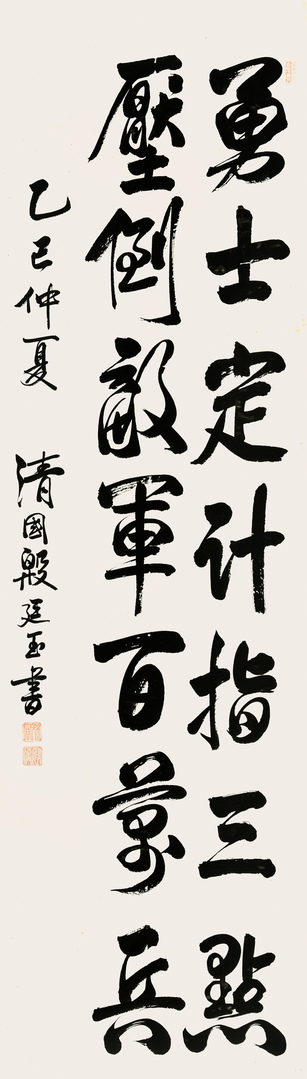 勇士定計指三點
壓倒敵軍百萬兵
乙巳仲夏 清國殷廷玉書